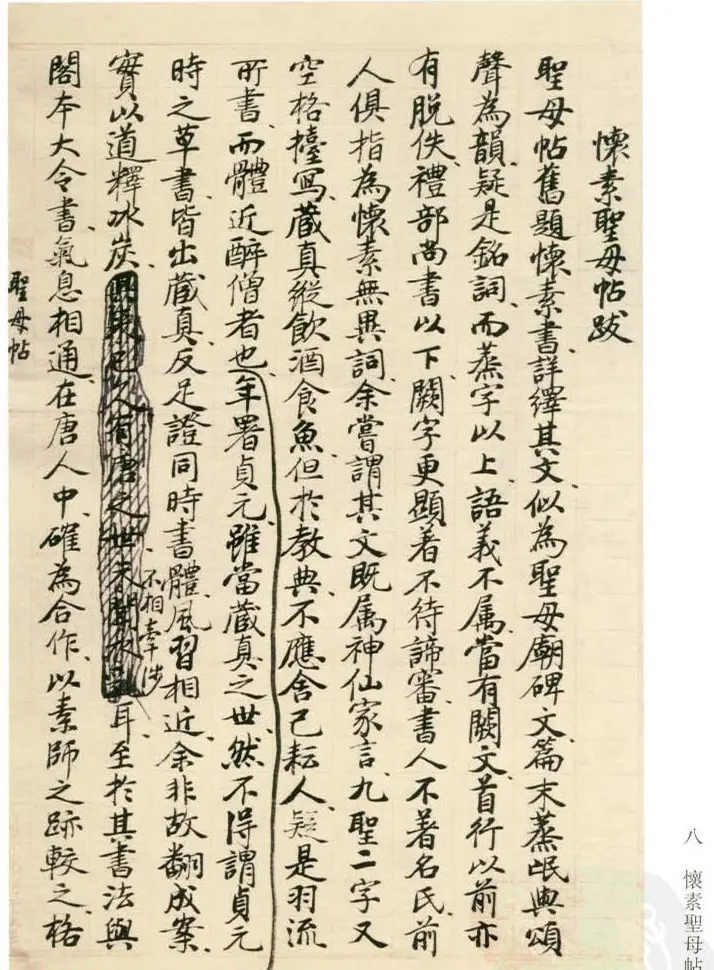 懷素聖母帖跋
聖母帖舊題懷素書詳繹其文、似為聖母廟碑文、篇末蒸氓興頌
聲為韻、疑是銘詞、而蒸字以上、語義不属、當有闕文、首行以前亦
有脱佚、禮部尚書以下、闕字更顯著、不待諦審、書人不著名氏、前
人俱指為懷素無異詞、余嘗謂其文既属神仙家言、九聖二字又
空格擡寫、蔵真縱飲酒食魚、但於教典、不應舍己耘人、疑是羽流
所書、而體近醉僧者也、年署貞元、雖當蔵真之世、然不得謂貞元
時之草書、皆出蔵真、反足證同時書體風習相近、余非故翻成案、
實以道釋冰炭、不相牽涉耳、至於其書法與
閣本大令書、氣息相通、在唐人中、確為合作、以素師之跡較之、格
聖母帖
八 懷素聖母帖